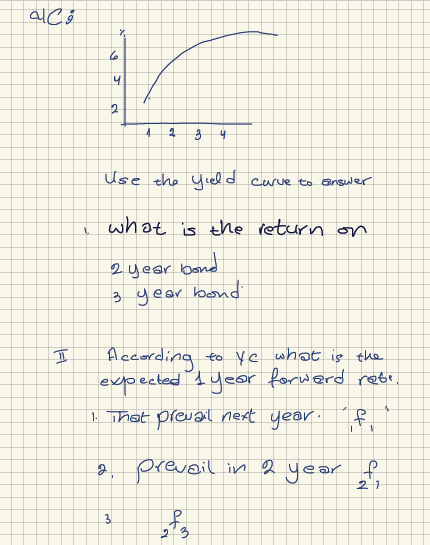 %
6
4
2
1 2 3 4
Use the yield curve to answer
1. what is the return on
2 year bond
3 year bond
II According to YC what is the
expected 1 year forward rate.
1. That prevail next year. '₁f₁'
2. prevail in 2 year ₂f₁
3 ₂f₃